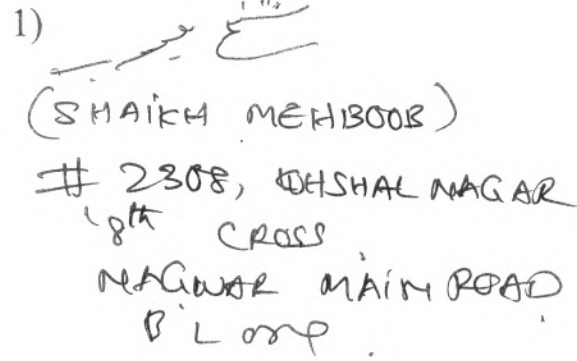 1) شیخ محبوب
(SHAIKH MEHBOOB)
# 2308, KHSHAL NAGAR
8th CROSS
NAGWAR MAIN ROAD
B'LORE